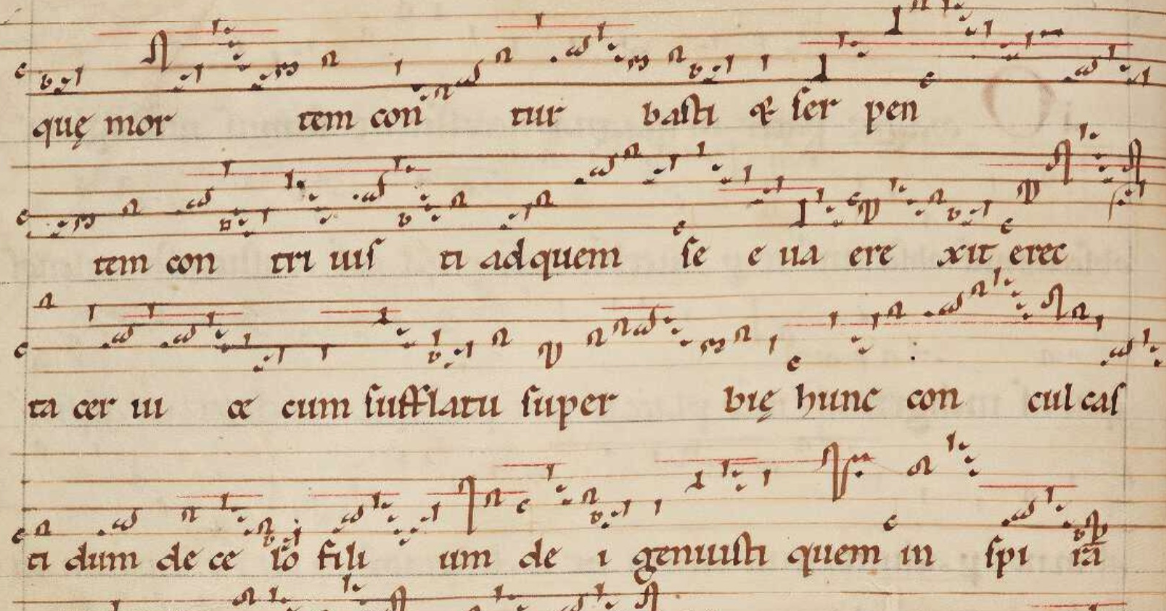 quę mor tem con tur basti & ser pen
tem con tri uis ti ad quem se e ua ere xit erec
ta cer ui ce cum sufflatu super bię hunc con cul cas
ti dum de ce lo fili um de i genuisti quem in spi rā